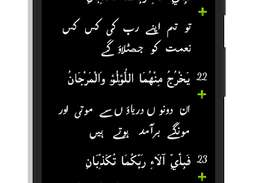 تو تم اپنے رب کی کس کس
نعمت کو جھٹلاؤ گے
22 يَخْرُجُ مِنْهُمَا اللُّؤْلُؤُ وَالْمَرْجَانُ
ان دونو ں دریاؤں سے موتی اور
مونگے برآمد ہوتے ہیں
23 فَبِأَيِّ آلَاءِ رَبِّكُمَا تُكَذِّبَانِ